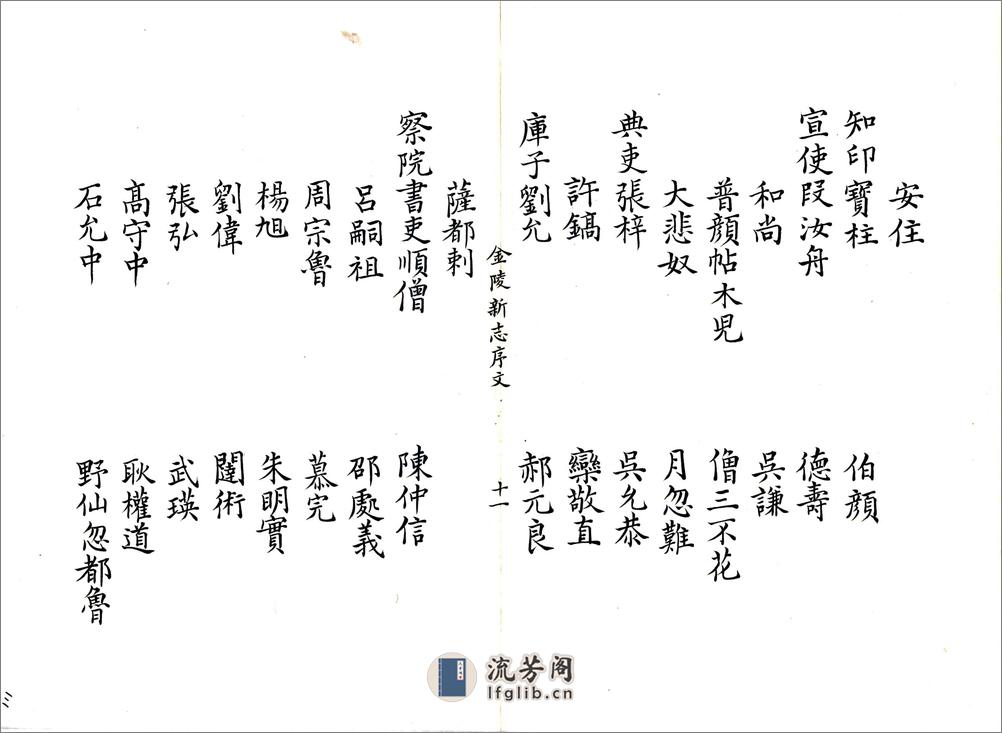 安住
知印寶柱　伯顔
宣使段汝舟　德壽
和尚　吳謙
普顔帖木児　僧三不花
大悲奴　月忽難
典吏張梓　吳允恭
許鎬　欒敬直
庫子劉允　郝元良
金陵新志序文　十一
薩都剌
察院書吏順僧　陳仲信
呂嗣祖　邵處義
周宗魯　慕完
楊旭　朱明實
劉偉　闥術
張弘　武瑛
髙守中　耿權道
石允中　野仙忽都魯
三
流芳阁
lfglib.cn